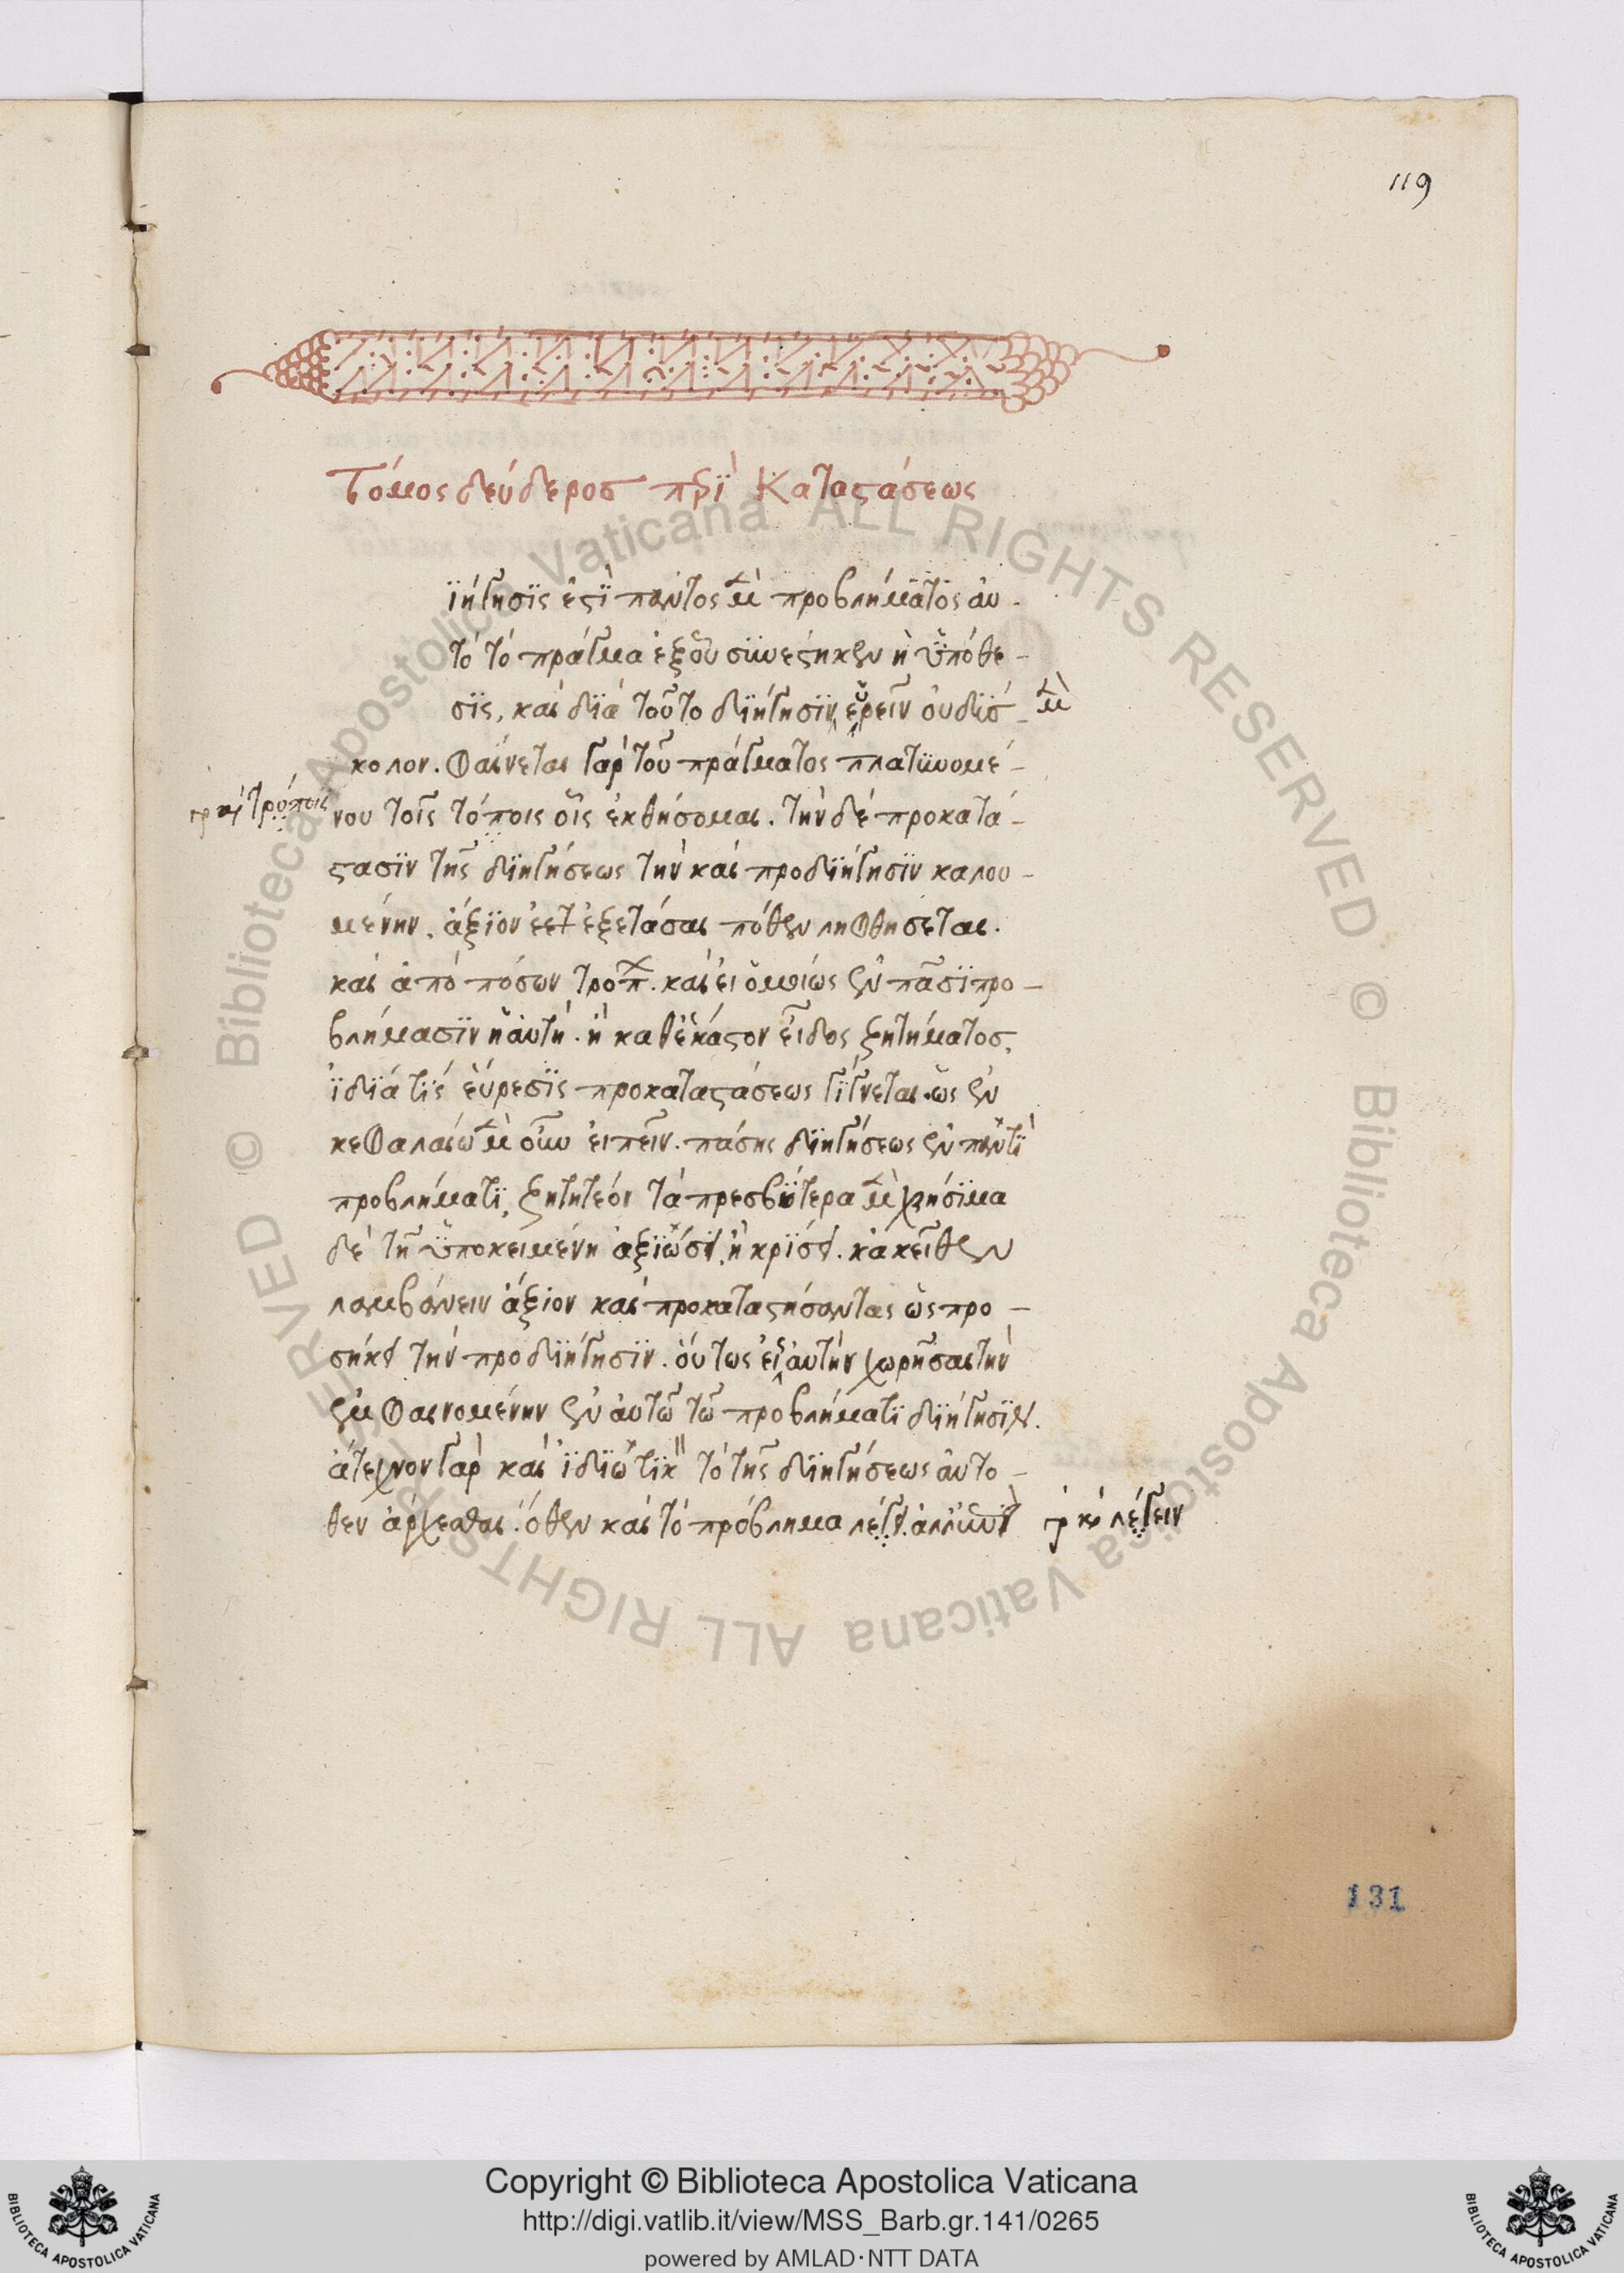 119
Τόμος δεύδερος πρὶ Καταστάσεως
ϊήγησϊς ἐστϊ παντος μὲν προβλήματος ἀυ-
τό τό πράγμα ἐξοὗ συνεστηκεν ἡ ὑπόθε-
σϊς, και δϊά τοῦτο δϊήγησϊν εὑρεῖν ὀυδϊσ- μὲν
κολον. Φαίνεται γαρ τοῦ πράγματος πλατϋνομέ-
γρ καὶ τρόποις
νου τοῖς τόποις οἷς ἐκθήσομαι. την δέ προκατά-
στασϊν τῆς δϊηγήσεως την και προδϊήγησϊν καλου-
μένην. ἄξϊον ἐστ ἐξετάσαι πόθεν ληΦθησεται.
και ἀπό πόσων τροπ. και ἐι ὁμοίως ἐν πᾶσϊ προ-
βλήμασϊν ἡ ἀυτή. ἢ καθ ἑκάστον εἶδος ζητήματος,
ϊδϊά τϊς ἑύρεσϊς προκαταστάσεως γϊγνεται. ὡς ἐν
κεΦαλαίω μὲν οὖν ἐιπεῖν. πάσης δϊηγήσεως ἐν παντϊ
προβλήματϊ, ζητητεόν τά πρεσβύτερα μὲν χρήσϊμα
δὲ τῆ ὑποκειμένη ἀξϊώσει, ἢ κρϊσει. κἀκεῖθεν
λαμβάνειν ἄξϊον και προκαταστήσαντας ὡς προ-
σήκει την προδϊήγησϊν. ὁύτως εἰς ἀυτήν χωρῆσαι την
ἐμΦαινομένην ἐν ἀυτῶ τῶ προβλήματϊ δϊήγησϊν.
ἄτεχνον γαρ και ϊδϊωτϊκ τό τῆς δϊηγήσεως ἀυτο-
θεν ἄρχεσθαι. ὅθεν και τό πρόβλημα λέγει. γρ καὶ λέγειν
131
Copyright © Biblioteca Apostolica Vaticana
http://digi.vatlib.it/view/MSS_Barb.gr.141/0265
powered by AMLAD·NTT DATA
BIBLIOTECA APOSTOLICA VATICANA
BIBLIOTECA APOSTOLICA VATICANA
© Biblioteca Apostolica Vaticana ALL RIGHTS RESERVED © Biblioteca Apostolica Vaticana ALL RIGHTS RESERVED